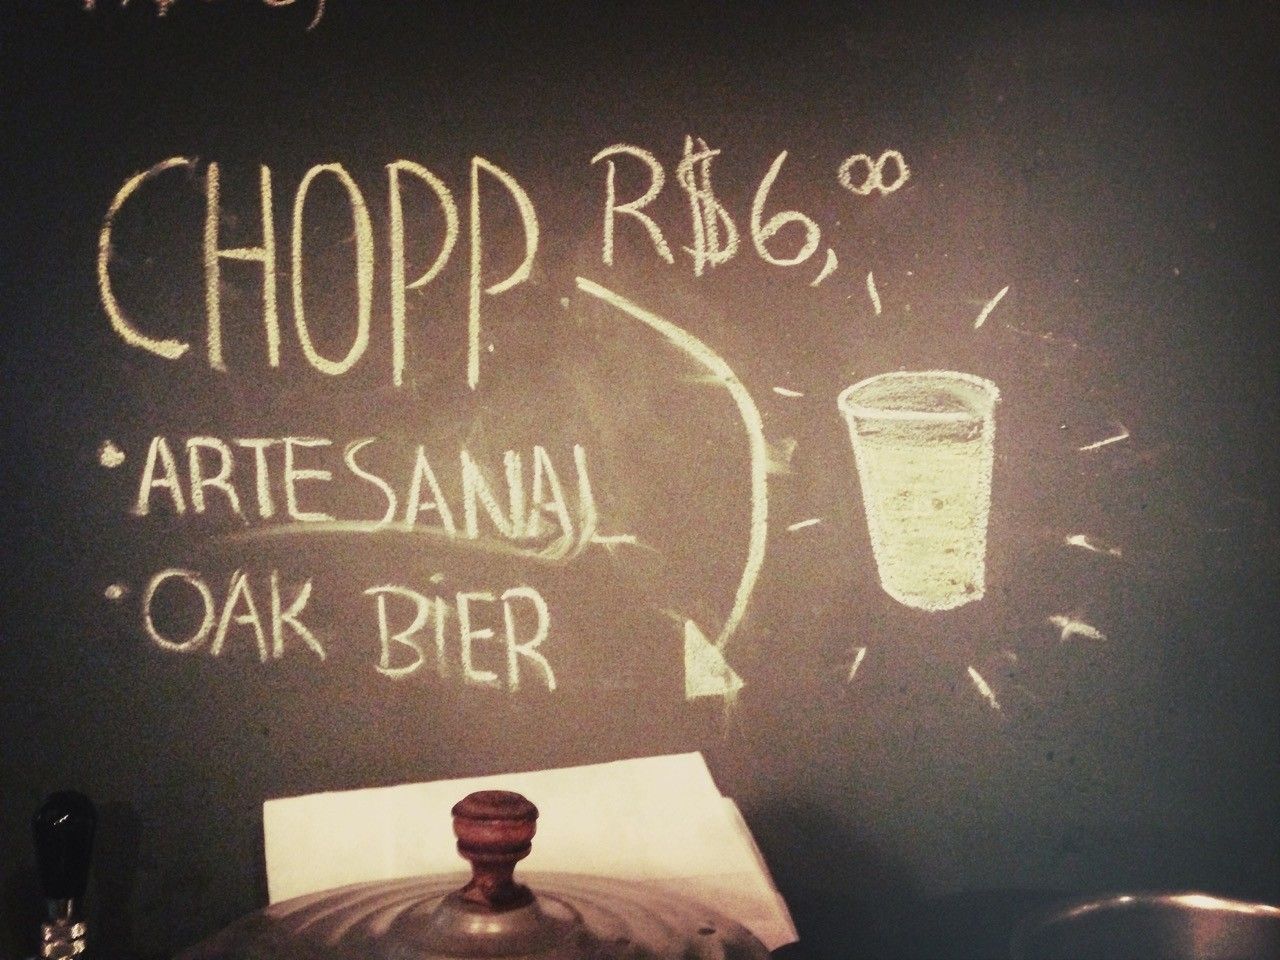 CHOPP R$6,00
• ARTESANAL
• OAK BIER